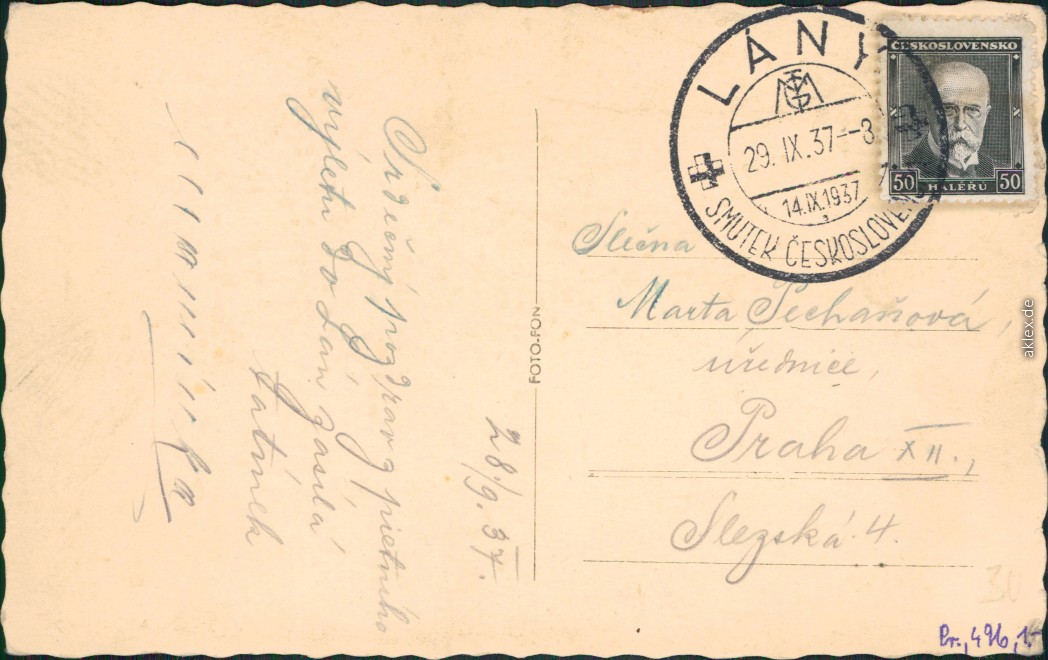 Srdečný pozdrav z pietního
výletu do Lán zasílá
tatínek
maminka
28./9. 37.
FOTO-FON
LÁNY
TGM
29. IX. 37--8
14.IX.1937
SMUTEK ČESKOSLOVEN
ČESKOSLOVENSKO
50 HALÉŘŮ 50
Slečna
Marta Pechaňová,
úřednice,
Praha XII.,
Slezská 4.
30
Pr., 496, 1.-
aklex.de